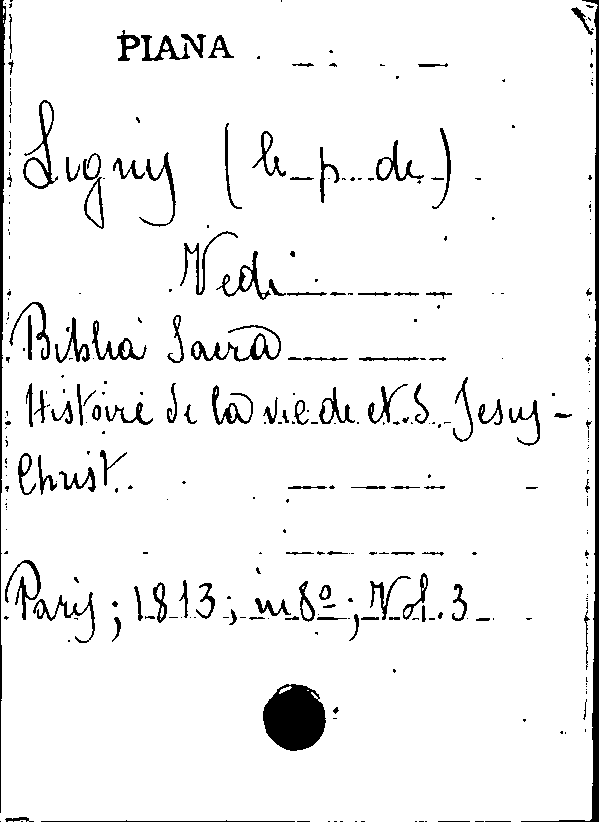 PIANA
Ligny (le p. de)
Vedi
Biblia Sacra
Histoire de la vie de N.S. Jesus-
Christ.
Paris; 1813; in 8º; Vol. 3